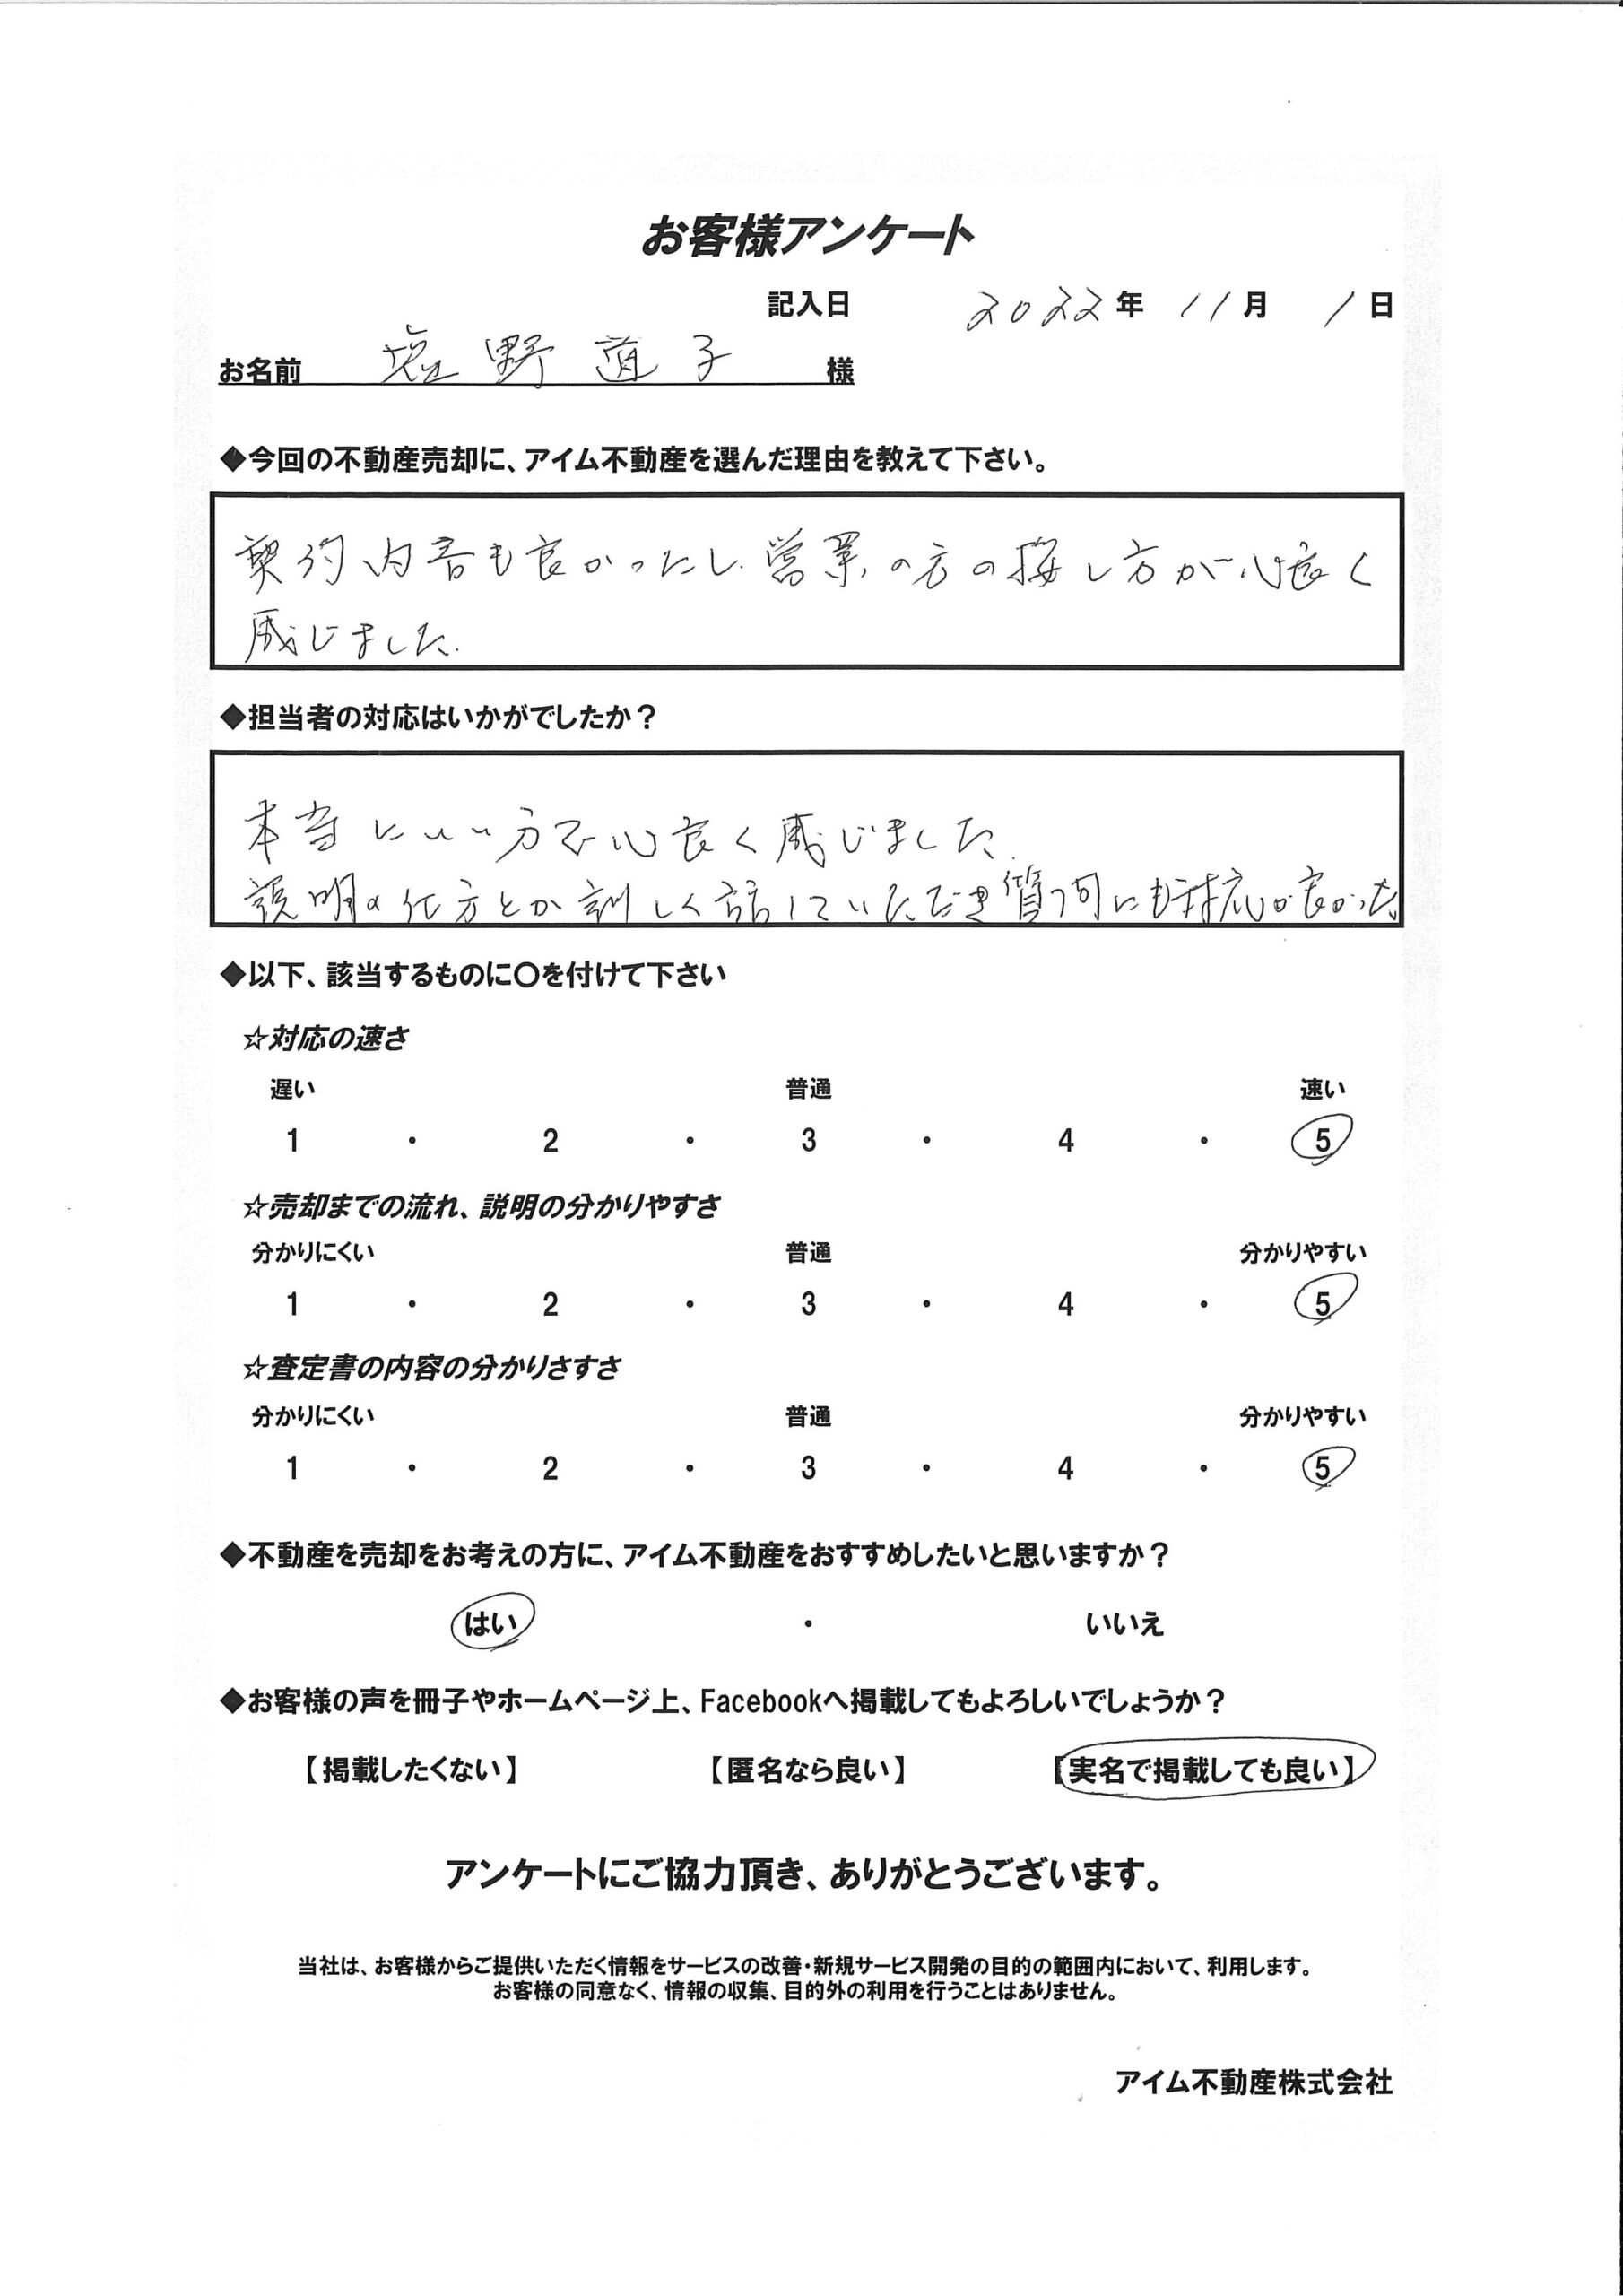 お客様アンケート
記入日 2022年 11月 1日
お名前 塩野道子 様
◆今回の不動産売却に、アイム不動産を選んだ理由を教えて下さい。
契約内容も良かったし、営業の方の接し方が心良く
感じました。
◆担当者の対応はいかがでしたか？
本当にいい方で心良く感じました。
説明の仕方とか訓しく話していただき質問にも対応が良かった
◆以下、該当するものに〇を付けて下さい
☆対応の速さ
遅い 普通 速い
1 ・ 2 ・ 3 ・ 4 ・ 5
☆売却までの流れ、説明の分かりやすさ
分かりにくい 普通 分かりやすい
1 ・ 2 ・ 3 ・ 4 ・ 5
☆査定書の内容の分かりさすさ
分かりにくい 普通 分かりやすい
1 ・ 2 ・ 3 ・ 4 ・ 5
◆不動産を売却をお考えの方に、アイム不動産をおすすめしたいと思いますか？
はい ・ いいえ
◆お客様の声を冊子やホームページ上、Facebookへ掲載してもよろしいでしょうか？
【掲載したくない】 【匿名なら良い】 【実名で掲載しても良い】
アンケートにご協力頂き、ありがとうございます。
当社は、お客様からご提供いただく情報をサービスの改善・新規サービス開発の目的の範囲内において、利用します。
お客様の同意なく、情報の収集、目的外の利用を行うことはありません。
アイム不動産株式会社